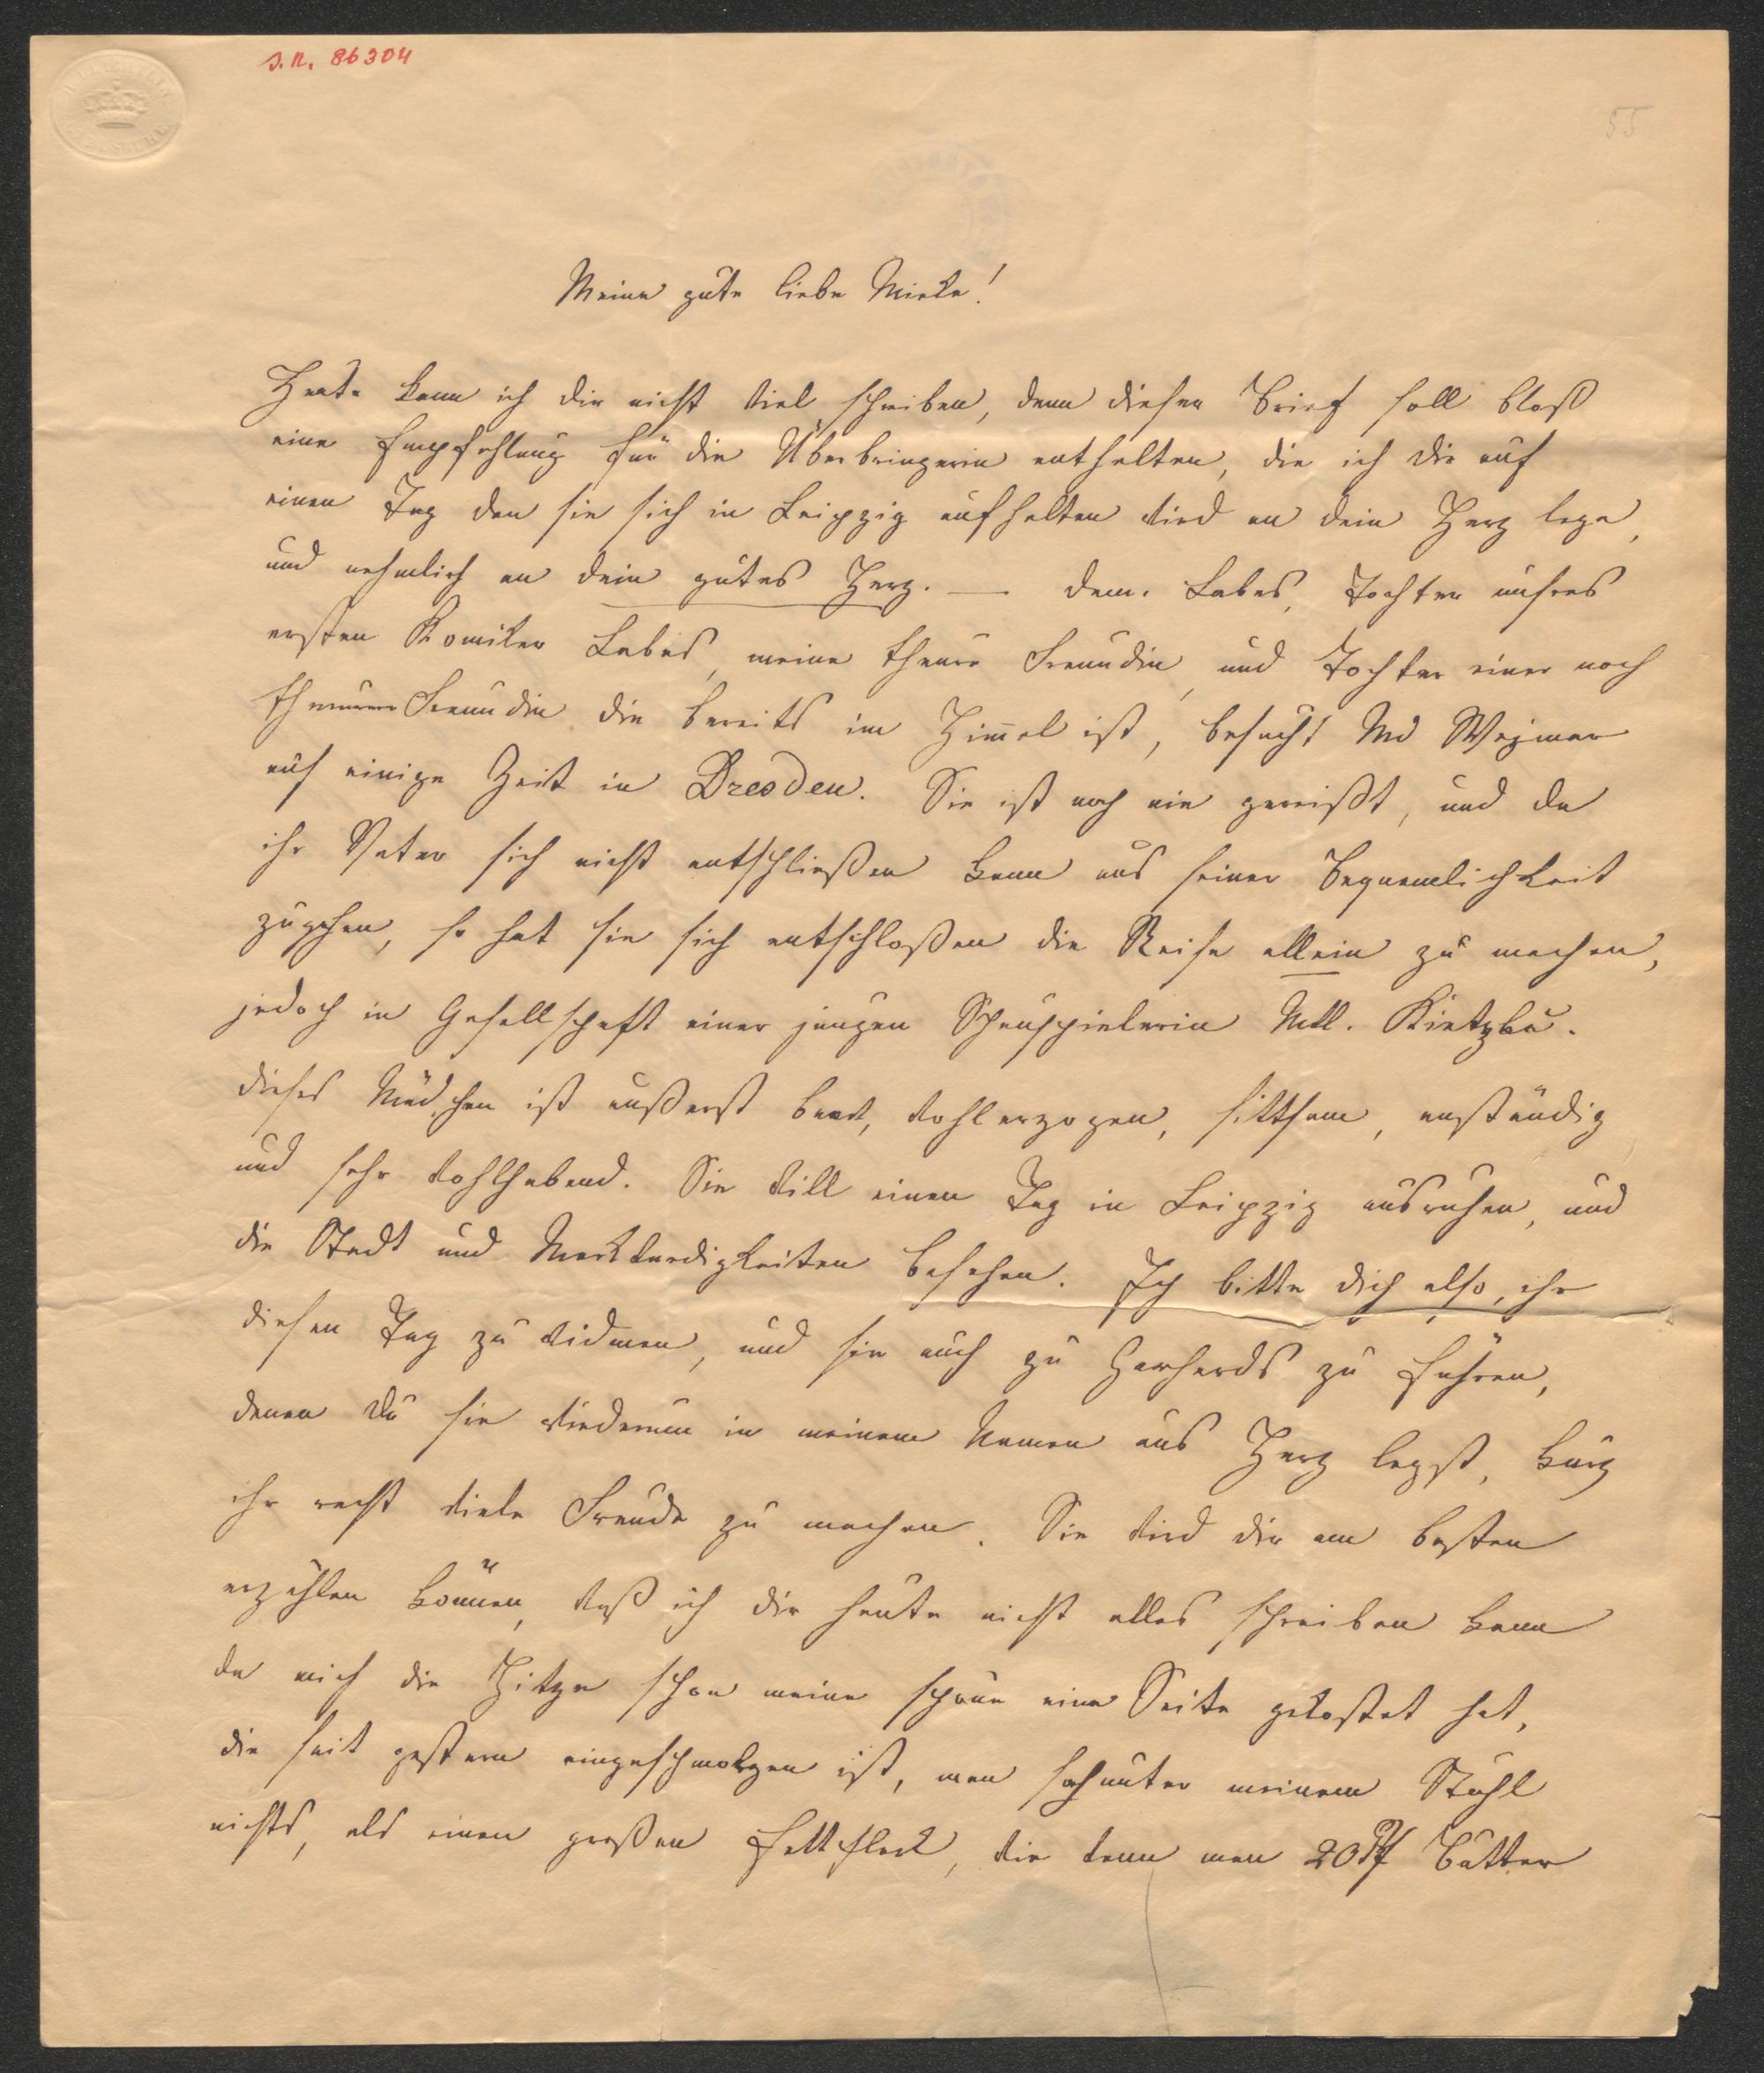 J.N. 86304
55
Meine gute liebe Mieke!
Heute kann ich dir nicht viel schreiben, denn dieser Brief soll bloß
eine Empfehlung für die Überbringerin enthalten, die ich dir auf
einen Tag den sie sich in Leipzig aufhalten wird an dein Herz lege,
und nehmlich an dein gutes Herz. — Dem. Labes, Tochter unsres
ersten Komiker Labes, meine theure Freundin, und Tochter einer noch
theurern Freundin die bereits im Himmel ist, besucht Md Weymar
auf einige Zeit in Dresden. Sie ist noch nie gereißt, und da
ihr Vater sich nicht entschließen kann aus seiner Bequemlichkeit
zugehen, so hat sie sich entschloßen die Reise allein zu machen,
jedoch in Gesellschaft einer jungen Schauspielerin Mll.
dieses Mädchen ist äußerst brav, wohlerzogen, sittsam, anständig
und sehr wohlhabend. Sie will einen Tag in Leipzig ausruhen, und
die Stadt und Merkwurdigkeiten besehen. Ich bitte dich also, ihr
diesen Tag zu widmen, und sie auch zu Gerhards zu führen,
denen du sie wiederum in meinem Namen ans Herz legst, kurz
ihr recht viele Freude zu machen. Sie wird dir am besten
erzählen können, daß ich dir heute nicht alles schreiben kann
da mich die Hitze schon meine schöne eine Seite gekostet hat,
die seit gestern eingeschmolzen ist, man sah unter meinem Stuhl
nichts, als einen großen Fettfleck, wie wenn man 20 ℔ Butter